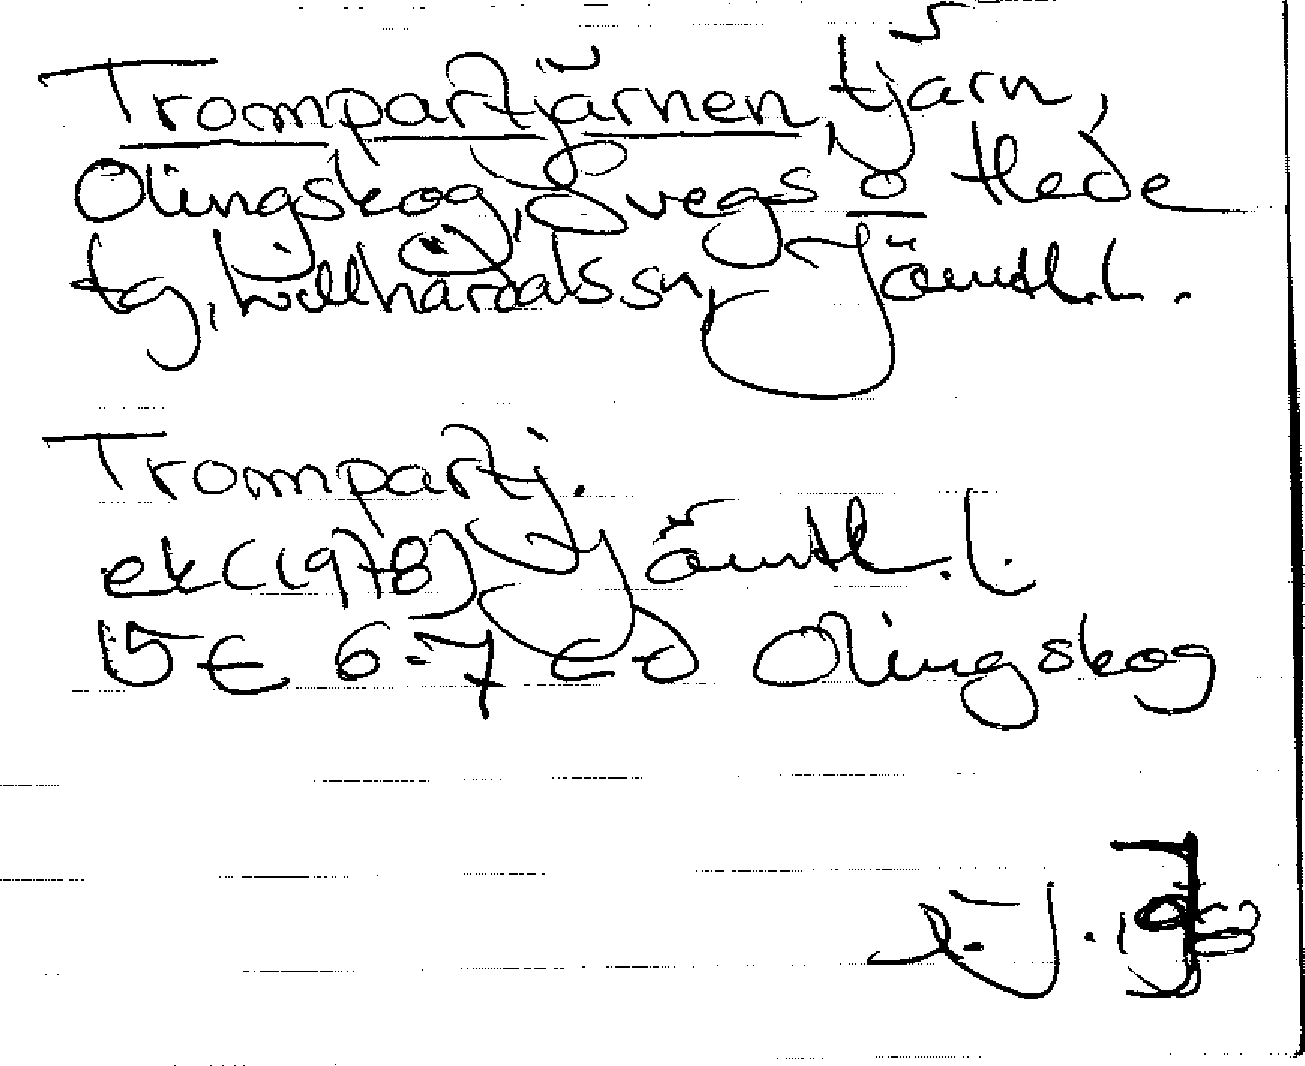 Trompartjärnen, tjärn,
Olingskog, Svegs o Hede
tg, Lillhärdals sn, Jämtl. l.
Trompartj.
ek (1978) Jämtl. l.
15E 6-7 c-d Olingskog